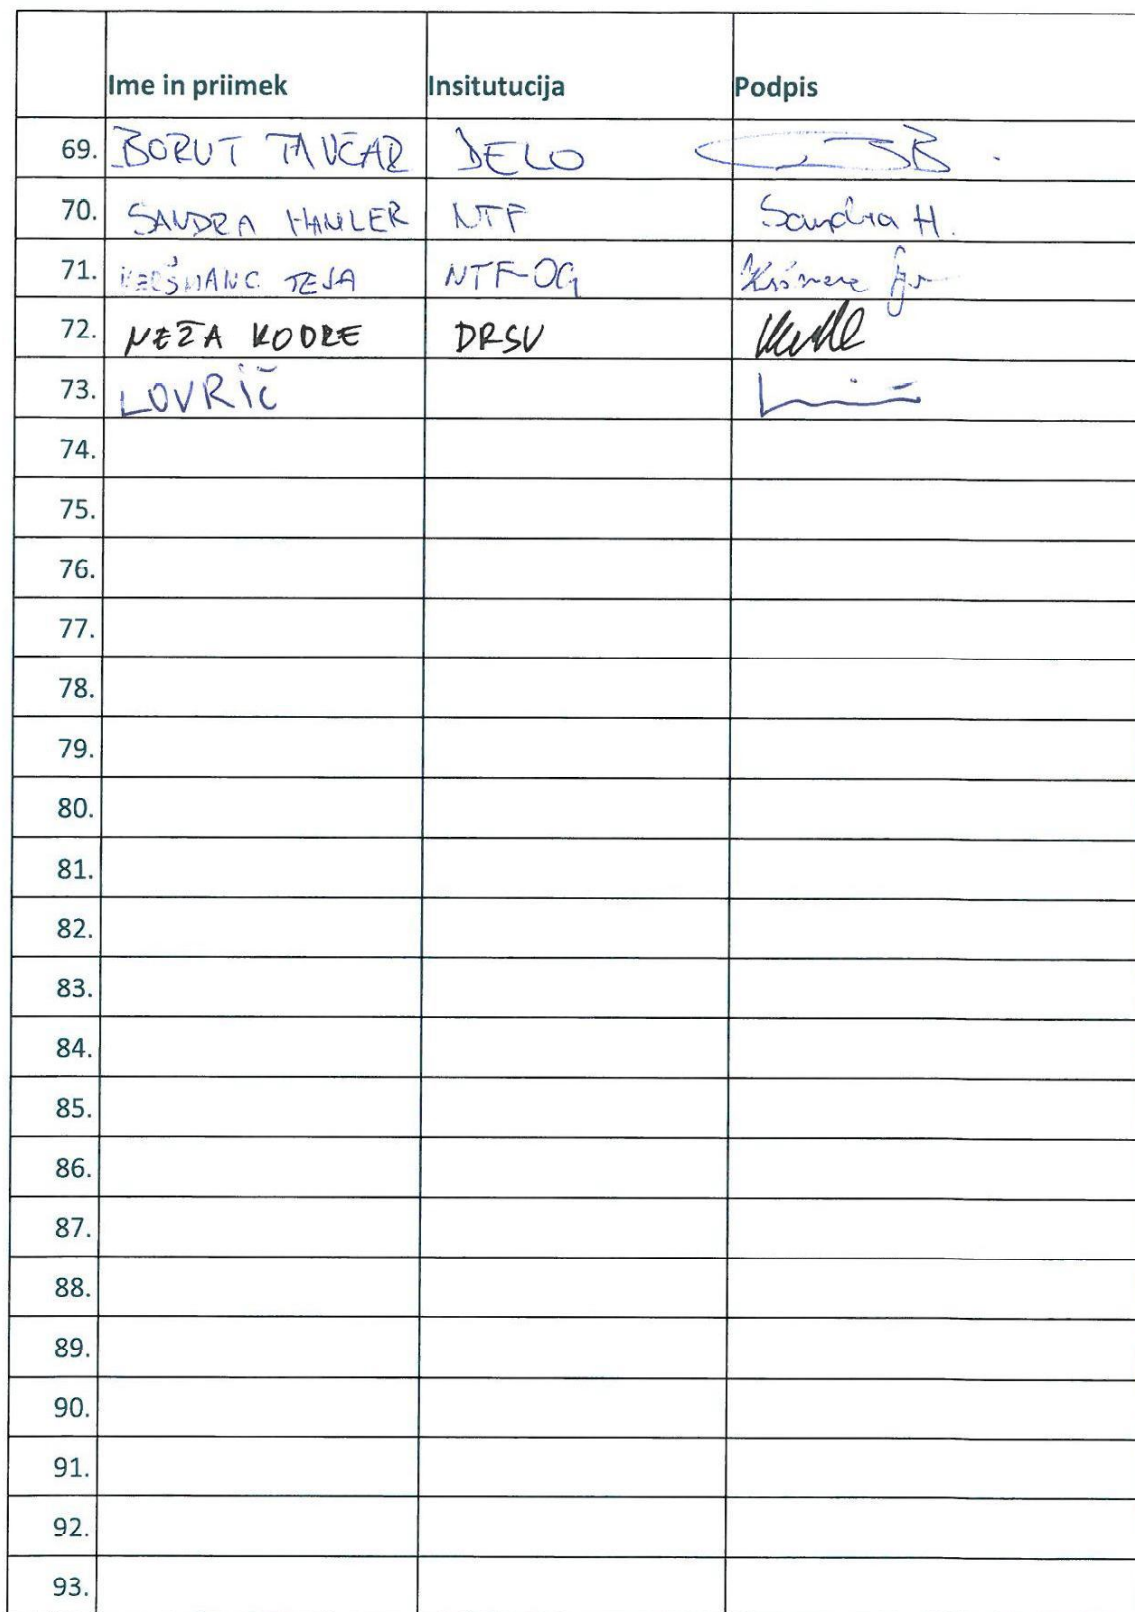 Ime in priimek Insitutucija Podpis
69. BORUT TAVČAR DELO
70. SANDRA HAMLER NTF Sandra H.
71. KRŠMANC TEJA NTF-OG
72. NEŽA KODRE DRSV
73. LOVRIČ
74.
75.
76.
77.
78.
79.
80.
81.
82.
83.
84.
85.
86.
87.
88.
89.
90.
91.
92.
93.